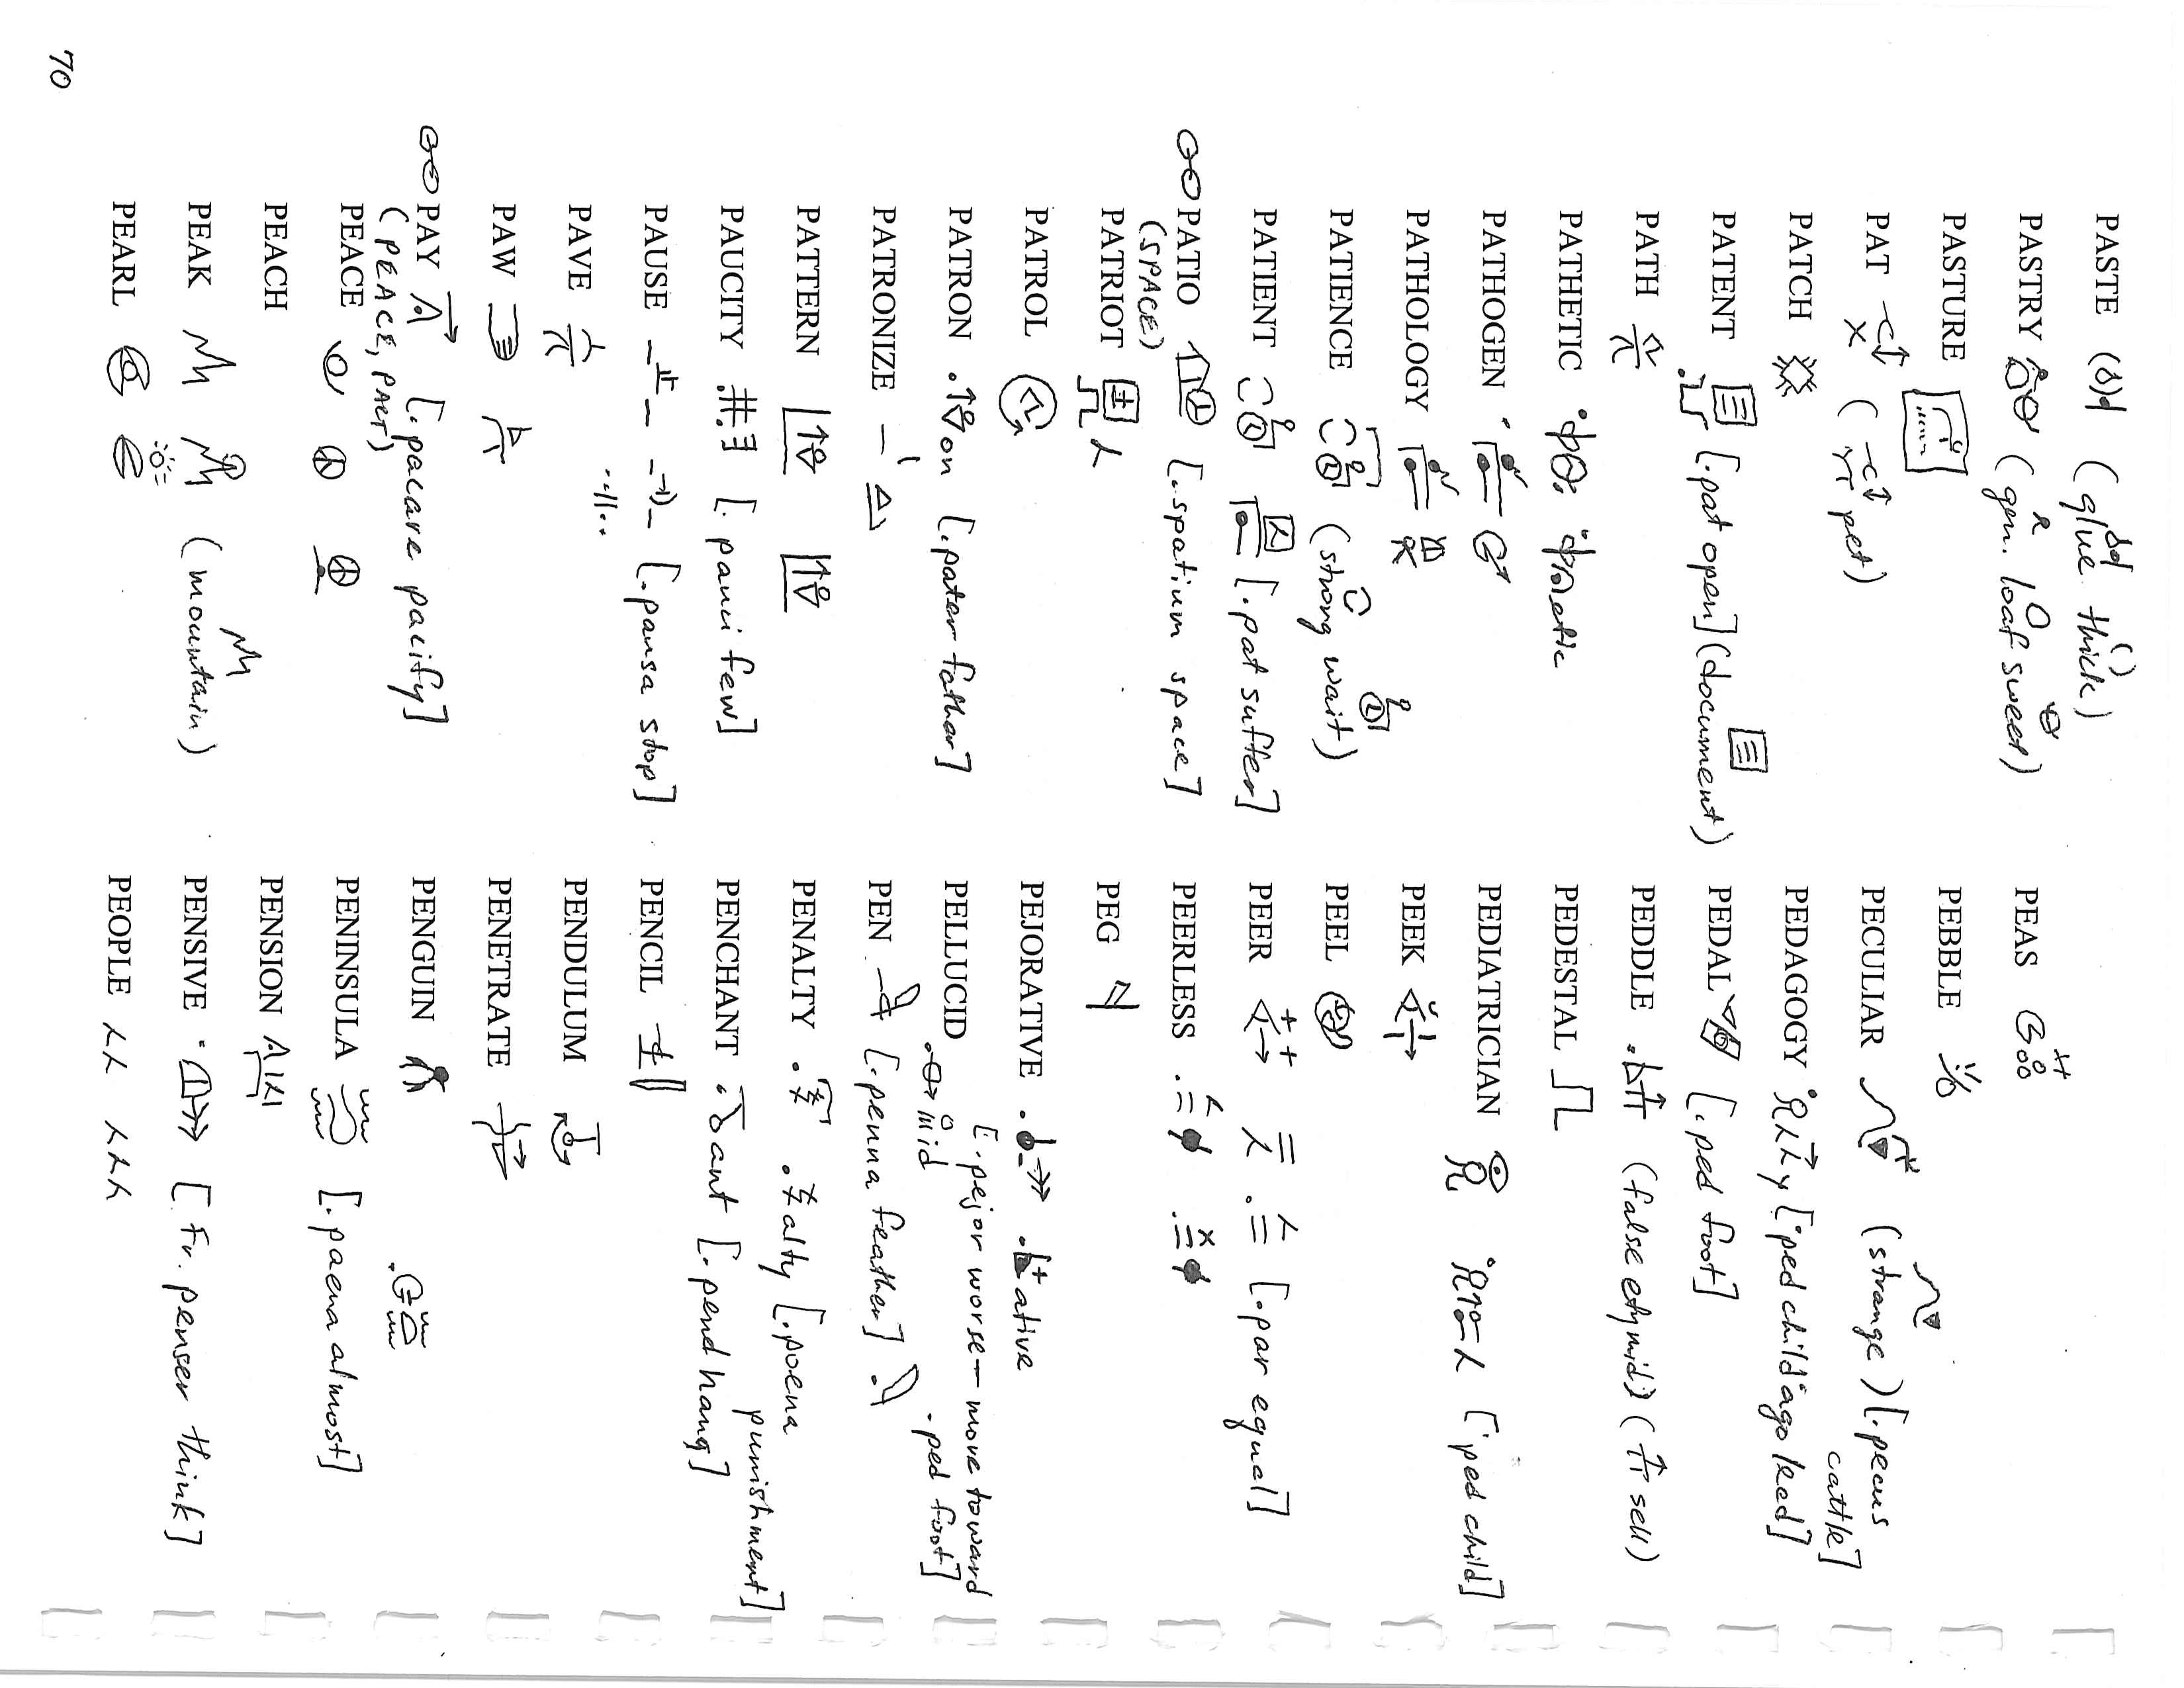 PASTE (glue thick)
PASTRY (gen. loaf sweet)
PASTURE
PAT ( pet)
PATCH
PATENT [.pat open] (document)
PATH
PATHETIC etic
PATHOGEN
PATHOLOGY
PATIENCE (strong wait)
PATIENT [.pat suffer]
PATIO [.spatium space]
(SPACE)
PATRIOT
PATROL
PATRON on [.pater father]
PATRONIZE
PATTERN
PAUCITY [.pauci few]
PAUSE [.pausa stop]
PAVE
PAW
PAY [.pacare pacify]
(PEACE, PACT)
PEACE
PEACH
PEAK (mountain)
PEARL
PEAS
PEBBLE
PECULIAR (strange) [.pecus
cattle]
PEDAGOGY y [ped child ago lead]
PEDAL [.ped foot]
PEDDLE (false etymid) ( sell)
PEDESTAL
PEDIATRICIAN [ped child]
PEEK
PEEL
PEER [.par equal]
PEERLESS
PEG
PEJORATIVE ative
[.pejor worse—move toward
PELLUCID id .ped foot]
PEN [.penna feather]
PENALTY alty [.poena
punishment]
PENCHANT ant [.pend hang]
PENCIL
PENDULUM
PENETRATE
PENGUIN
PENINSULA [.paena almost]
PENSION
PENSIVE [Fr. penser think]
PEOPLE
70